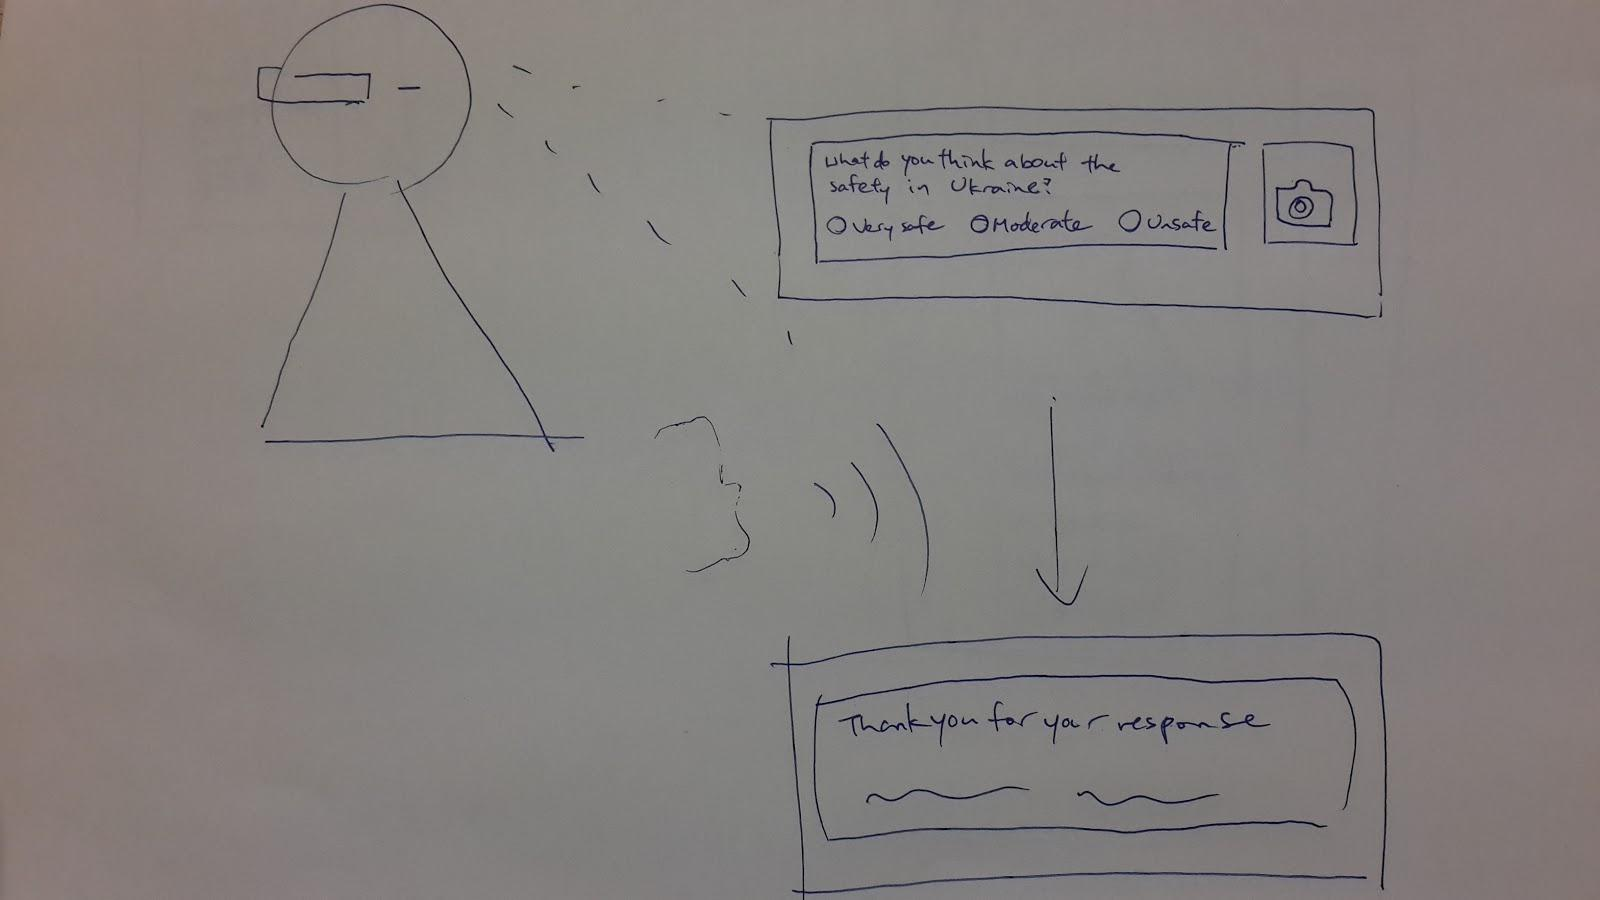 What do you think about the
safety in Ukraine?
Very safe Moderate Unsafe
Thank you for your response